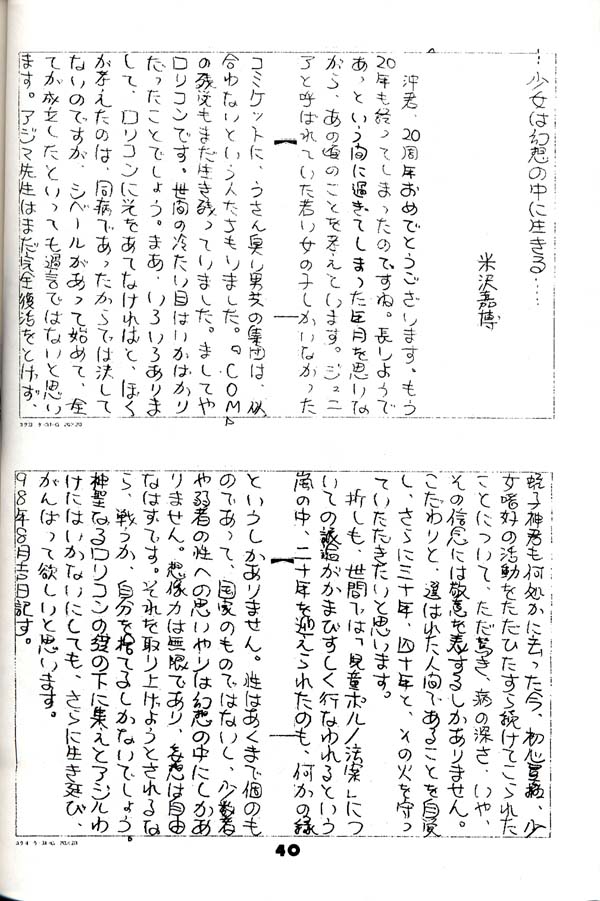 …少女は幻想の中に生きる……
米沢嘉博
沖君、20周年おめでとうございます。もう
20年も経ってしまったのですね。長いようで
あっという間に過ぎてしまった年月を思いな
がら、あの頃のことを考えています。ジュニ
アと呼ばれていた若い女の子しかいなかった
コミケットに、うさん臭い男共の集団は、似
合わないという人たちもいました。『COM』
の残党もまだ生き残っていました。ましてや
ロリコンです。世間の冷たい目はいかばかり
だったことでしょう。まあ、いろいろありま
して、ロリコンに光をあてなければと、ぼく
が考えたのは、同病であったからでは決して
ないのですが、シベールがあって始めて、全
てが成立したといっても過言ではないと思い
ます。アジマ先生はまだ完全復活をとげず、
蛭子神君も何処かに去った今、初心貫徹、少
女嗜好の活動をただひたすら続けてこられた
ことについて、ただ驚き、病の深さ、いや、
その信念には敬意を表するしかありません。
こだわりと、選ばれた人間であることを自覚
し、さらに三十年、四十年と、その火を守っ
ていただきたいと思います。
折しも、世間では「児童ポルノ法案」につ
いての議論がかまびすしく行なわれるという
嵐の中、二十年を迎えられたのも、何かの縁
というしかありません。性はあくまで個のも
のであって、国家のものではないし、少数者
や弱者の性への思いやりは幻想の中にしかあ
りません。想像力は無限であり、妄想は自由
なはずです。それを取り上げようとされるな
ら、戦うか、自分を捨てるしかないでしょう。
神聖なるロリコンの旗の下に集えとアジルわ
けにはいかないにしても、さらに生き延び、
がんばって欲しいと思います。
98年8月吉日記す。
40